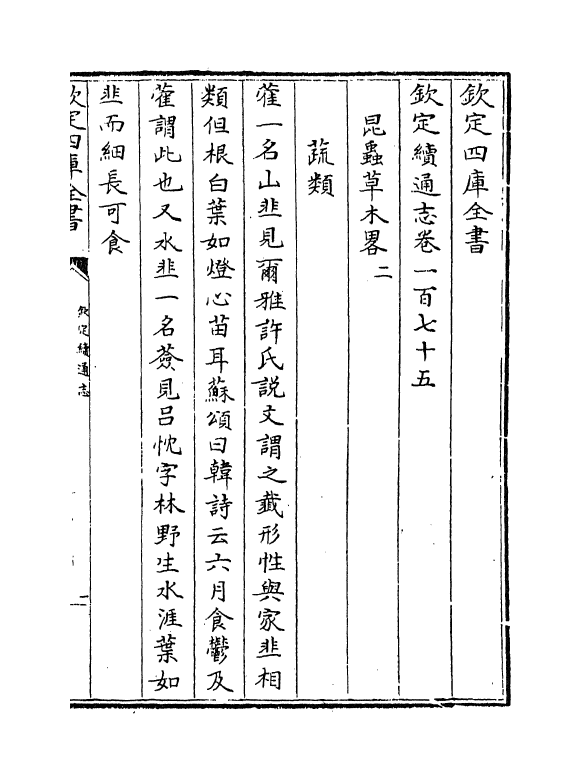 欽定四庫全書
欽定續通志卷一百七十五
昆蟲草木畧二
蔬類
藿一名山韭見爾雅許氏説文謂之韱形性與家韭相
類但根白葉如燈心苗耳蘇頌曰韓詩云六月食鬱及
藿謂此也又水韭一名䔑見吕忱字林野生水涯葉如
韭而細長可食
欽定四庫全書
欽定續通志